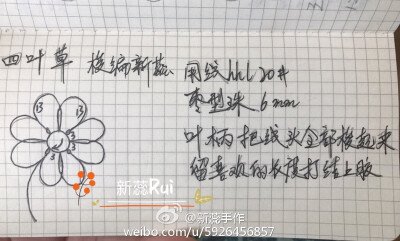 四叶草 梭编新蕊 用线hhl20#
枣型珠 6mm
叶柄把线头全部梭起来
留喜欢的长度打结上胶
13
13
3
3
3
新蕊Rui
@新蕊手作
weibo.com/u/5926456857